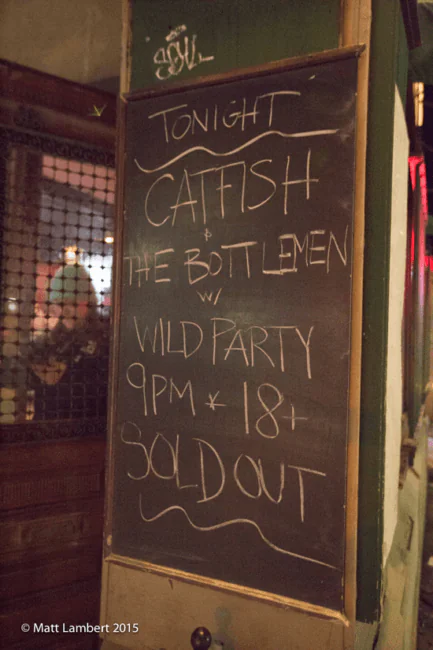 TONIGHT
CATFISH
&
THE BOTTLEMEN
w/
WILD PARTY
9PM * 18+
SOLD OUT
© Matt Lambert 2015